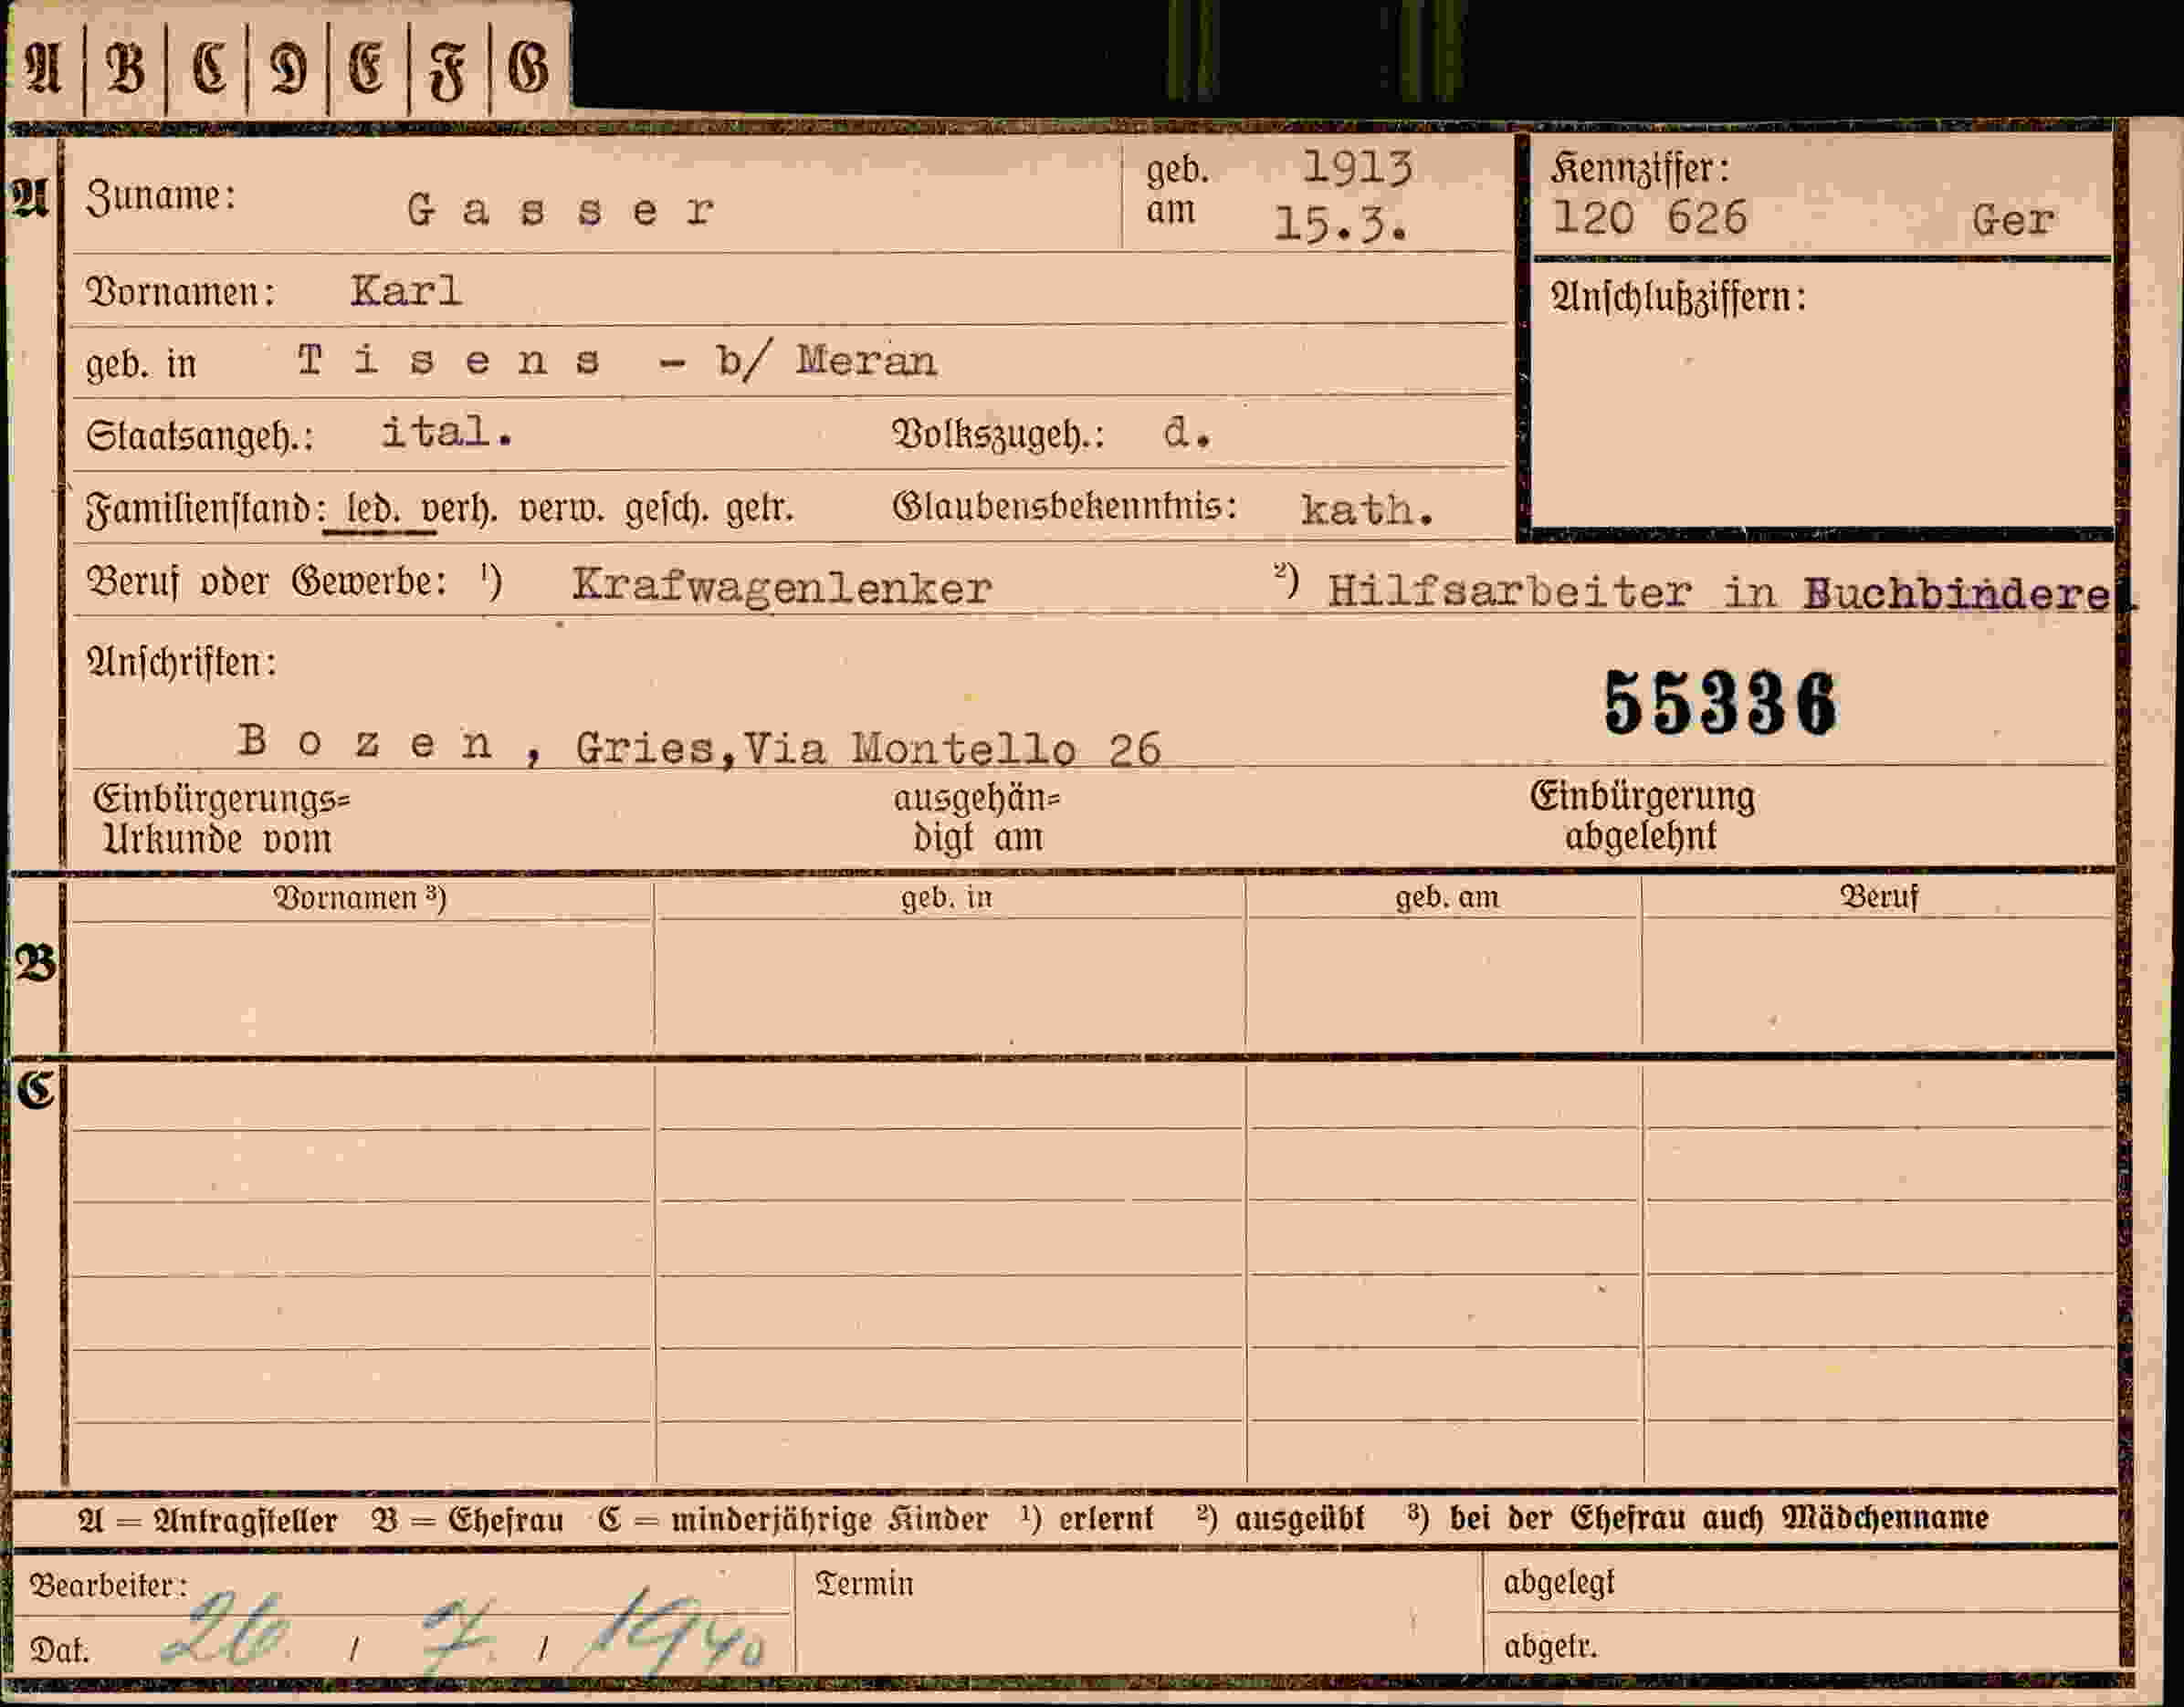 A | B | C | D | E | F | G
A Zuname: Gasser geb. am 1913 15.3. Kennziffer: 120 626 Ger
Vornamen: Karl Anschlußziffern:
geb. in Tisens - b/ Meran
Staatsangeh.: ital. Volkszugeh.: d.
Familienstand: led. verh. verw. gesch. getr. Glaubensbekenntnis: kath.
Beruf oder Gewerbe: ¹) Krafwagenlenker ²) Hilfsarbeiter in Buchbindere
Anschriften: 55336
Bozen, Gries,Via Montello 26
Einbürgerungs= ausgehän= Einbürgerung
Urkunde vom digt am abgelehnt
Vornamen ³) geb. in geb. am Beruf
B
C
A = Antragsteller B = Ehefrau C = minderjährige Kinder ¹) erlernt ²) ausgeübt ³) bei der Ehefrau auch Mädchenname
Bearbeiter: Termin abgelegt
Dat. 26. / 7. / 1940 abgetr.